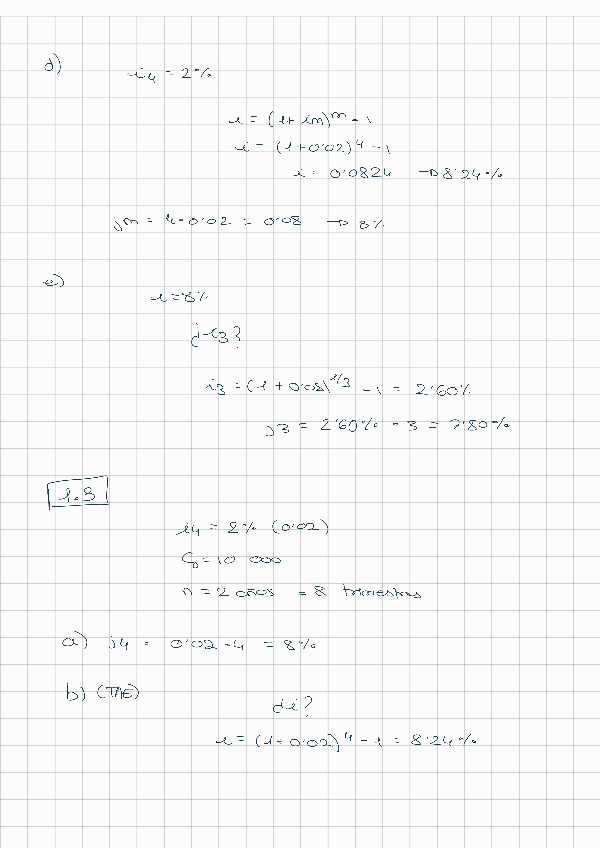 d)
i4 = 2%
i = (1+im)^m - 1
i = (1+0'02)^4 - 1
i = 0'0824 → 8'24%
jm = 4·0'02 = 0'08 → 8%
e)
i = 8%
¿i3?
i3 = (1 + 0'08)^1/3 - 1 = 2'60%
j3 = 2'60% · 3 = 7'80%
1.3
i4 = 2% (0'02)
C0 = 10 000
n = 2 años = 8 trimestres
a) j4 = 0'02·4 = 8%
b) (TAE)
¿i?
i = (1+0'02)^4 - 1 = 8'24%